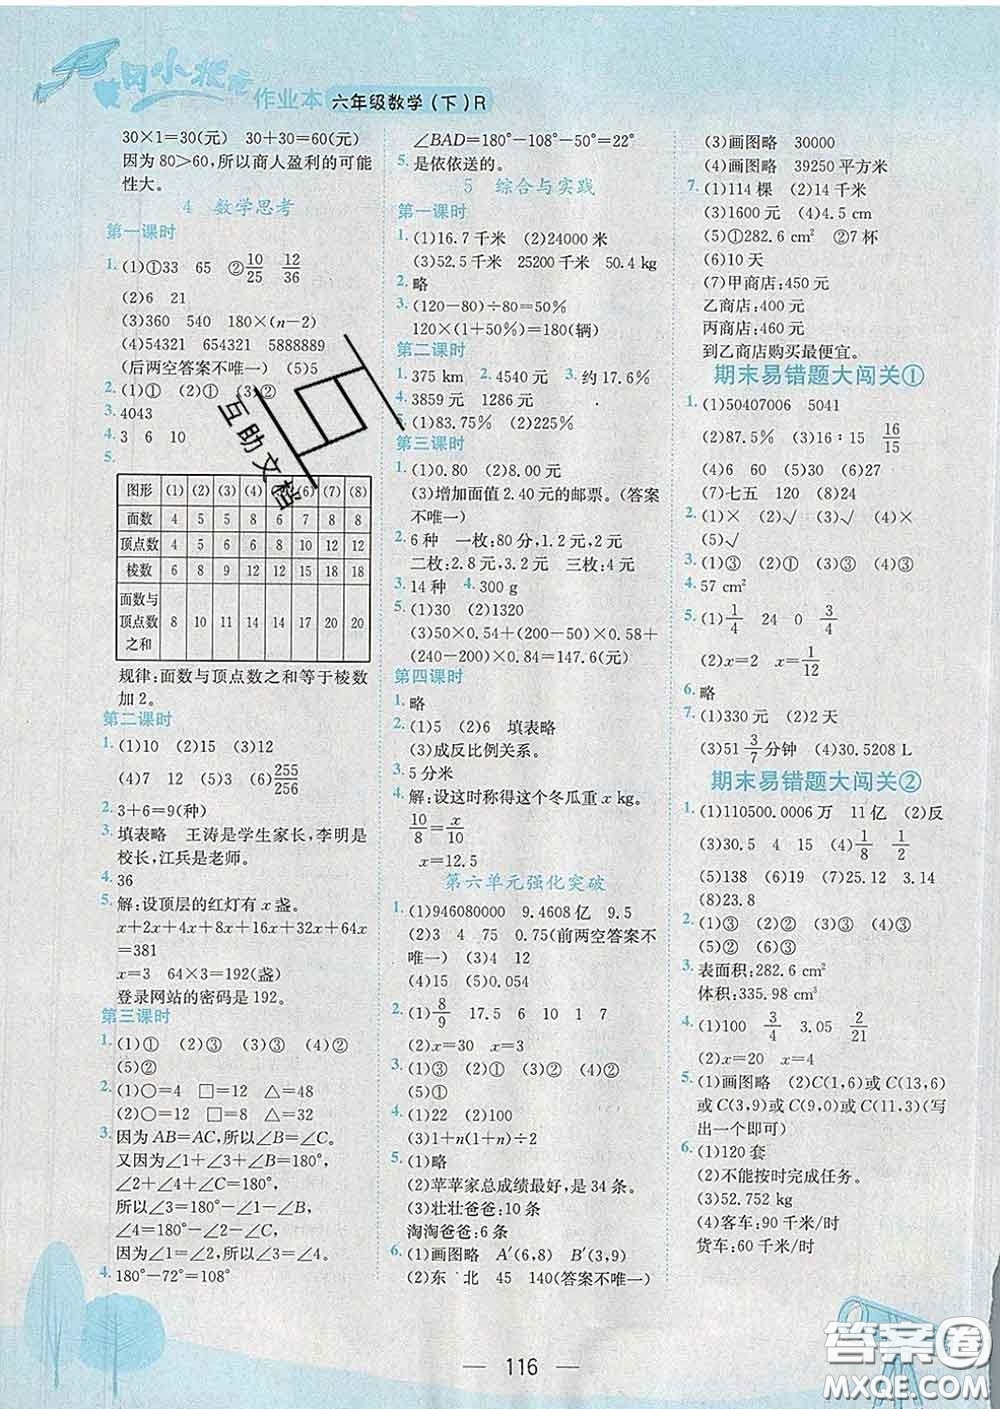 黄冈小状元
作业本 六年级数学(下)R
30×1=30(元) 30+30=60(元)
因为80>60,所以商人盈利的可能
性大。
4 数学思考
第一课时
1. (1)①33 65 ②10/25 12/36
(2)6 21
(3)360 540 180×(n-2)
(4)54321 654321 5888889
(后两空答案不唯一) (5)5
2. (1)① (2)① (3)②
3. 4043
4. 3 6 10
5.
图形 (1) (2) (3) (4) (5) (6) (7) (8)
面数 4 5 5 8 6 7 8 8
顶点数 4 5 6 6 8 10 12 12
棱数 6 8 9 12 12 15 18 18
面数与顶点数之和 8 10 11 14 14 17 20 20
规律:面数与顶点数之和等于棱数
加2。
第二课时
1. (1)10 (2)15 (3)12
(4)7 12 (5)3 (6)255/256
2. 3+6=9(种)
3. 填表略 王涛是学生家长,李明是
校长,江兵是老师。
4. 36
5. 解:设顶层的红灯有x盏。
x+2x+4x+8x+16x+32x+64x
=381
x=3 64×3=192(盏)
登录网站的密码是192。
第三课时
1. (1)① (2)③ (3)③ (4)②
(5)②
2. (1)○=4 □=12 △=48
(2)○=12 □=8 △=32
3. 因为AB=AC,所以∠B=∠C。
又因为∠1+∠3+∠B=180°,
∠2+∠4+∠C=180°,
所以∠3=180°-∠1-∠B,
∠4=180°-∠2-∠C。
因为∠1=∠2,所以∠3=∠4。
4. 180°-72°=108°
∠BAD=180°-108°-50°=22°
5. 是依依送的。
5 综合与实践
第一课时
1. (1)16.7千米 (2)24000米
(3)52.5千米 25200千米 50.4 kg
2. 略
3. (120-80)÷80=50%
120×(1+50%)=180(辆)
第二课时
1. 375 km 2. 4540元 3. 约17.6%
4. 3859元 1286元
5. (1)83.75% (2)225%
第三课时
1. (1)0.80 (2)4.00
(3)增加面值2.40元的邮票。(答案
不唯一)
2. 6种 一枚:80分,1.2元,2元
二枚:2.8元,3.2元 三枚:4元
3. 14种 4. 300 g
5. (1)30 (2)1320
(3)50×0.54+(200-50)×0.64+
(240-200)×0.84=147.6(元)
第四课时
1. 略
2. (1)5 (2)6 填表略
(3)成反比例关系。
3. 5分米
4. 解:设这时称得这个冬瓜重x kg。
10/8=x/10
x=12.5
第六单元强化突破
1. (1)946080000 9.4608亿 9.5
(2)3 4 75 0.75(前两空答案不
唯一) (3)4 12
(4)15 (5)0.054
2. (1)8/9 17.5 6 10 1 7
(2)x=30 x=3
3. (1)③ (2)① (3)② (4)②
(5)①
4. (1)22 (2)100
(3)1+n(1+n)÷2
5. (1)略
(2)苹苹家总成绩最好,是34条。
(3)壮壮爸爸:10条
淘淘爸爸:6条
6. (1)画图略 A′(6,8) B′(3,9)
(2)东 北 45 140(答案不唯一)
(3)画图略 30000
(4)画图略 39250平方米
7. (1)114棵 (2)14千米
(3)1600元 (4)4.5 cm
(5)①282.6 cm² ②7杯
(6)10天
(7)甲商店:450元
乙商店:400元
丙商店:460元
到乙商店购买最便宜。
期末易错题大闯关①
1. (1)50407006 5041
(2)87.5% (3)16∶15 16/15
(4)6 60 (5)30 (6)27
(7)七五 120 (8)24
2. (1)× (2)√ (3)√ (4)×
(5)√
3. (1)③ (2)① (3)③ (4)③
4. 57 cm²
5. (1)1/4 24 0 3/4
(2)x=2 x=1/12
6. 略
7. (1)330元 (2)2天
(3)51 3/7分钟 (4)30.5208 L
期末易错题大闯关②
1. (1)110500.0006万 11亿 (2)反
(3)30.5 14 80 (4)1/8 1/2
(5)138 (6)21 (7)25.12 3.14
(8)23.8
2. (1)③ (2)② (3)③ (4)③
(5)② (6)③
3. 表面积:282.6 cm²
体积:335.98 cm³
4. (1)100 3/4 3.05 2/21
(2)x=20 x=4
5. (1)画图略 (2)C(1,3)或C(13,6)
或C(3,9)或C(9,0)或C(11,3)(写
出一个即可)
6. (1)120套
(2)不能按时完成任务。
(3)52.752 kg
(4)客车:90千米/时
货车:60千米/时
116
互助文档
答案圈
MXQE.COM